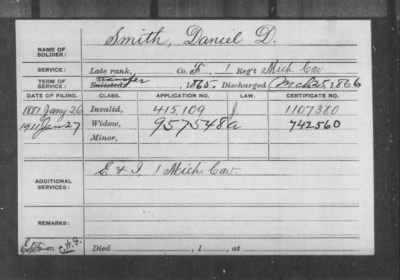 Smith, Daniel D.
NAME OF SOLDIER:
SERVICE: Late rank, Co. F, 1 Reg't Mich Cav
TERM OF SERVICE: Enlisted transfer 1865. Discharged Mch 25, 1866
DATE OF FILING. CLASS. APPLICATION NO. LAW. CERTIFICATE NO.
1881 Jany 26 Invalid, 415.109 J 1107380
1911 Jan 27 Widow, 957548 a 742560
Minor,
ADDITIONAL SERVICES: E & I, 1 Mich. Cav.
REMARKS:
Died , 1 , at